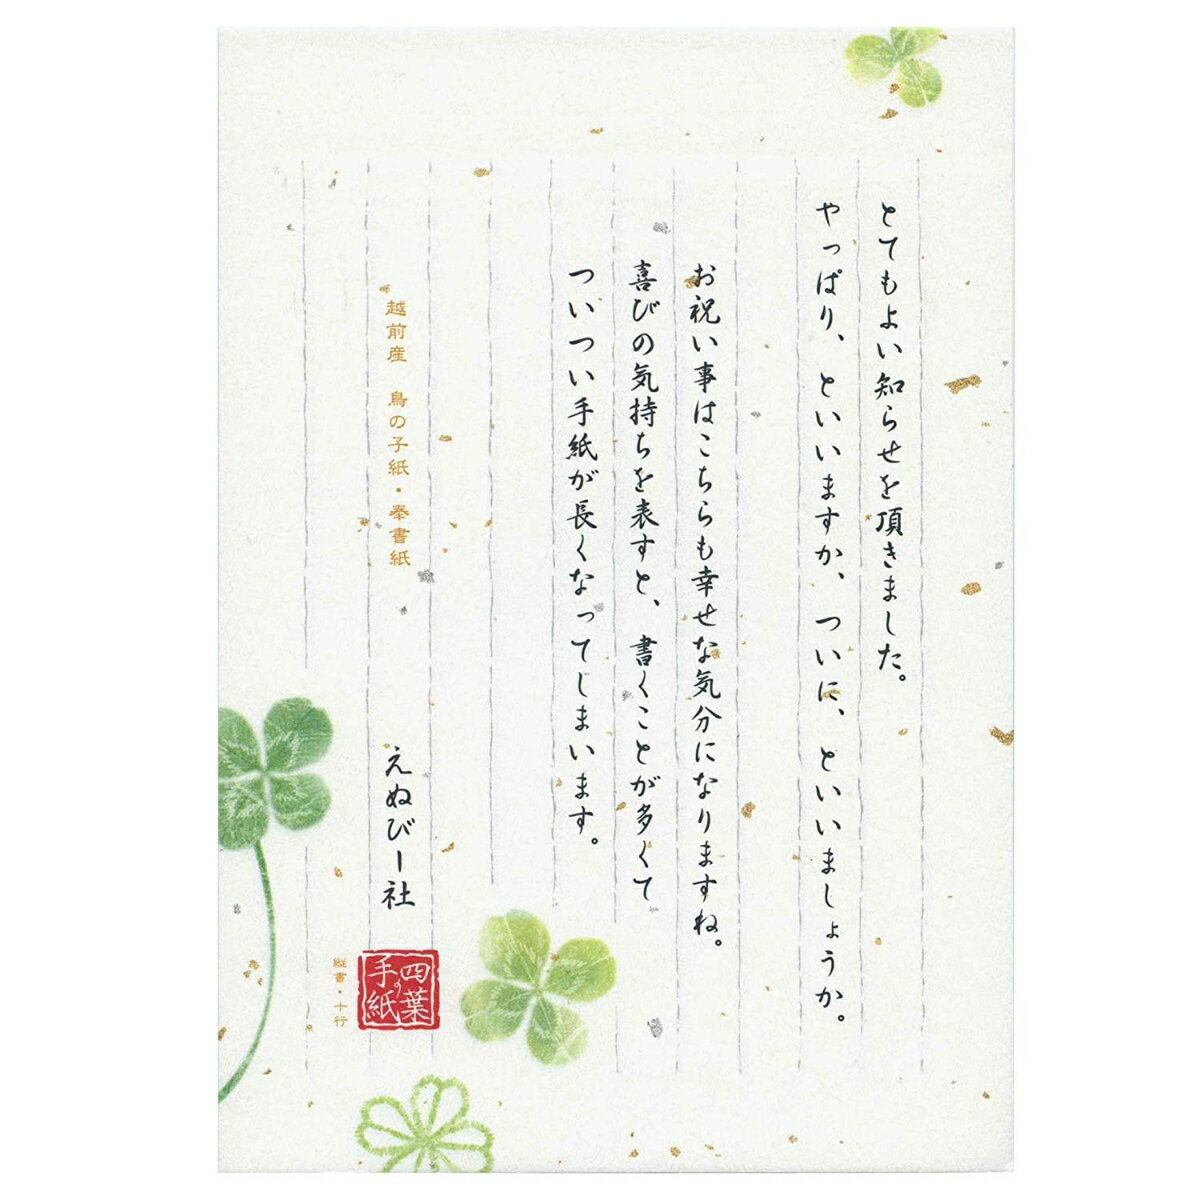 とてもよい知らせを頂きました。
やっぱり、といいますか、ついに、といいましょうか。
お祝い事はこちらも幸せな気分になりますね。
喜びの気持ちを表すと、書くことが多くて
ついつい手紙が長くなってしまいます。
越前産 鳥の子紙・奉書紙
えぬびー社
四葉の
手紙
縦書・十行